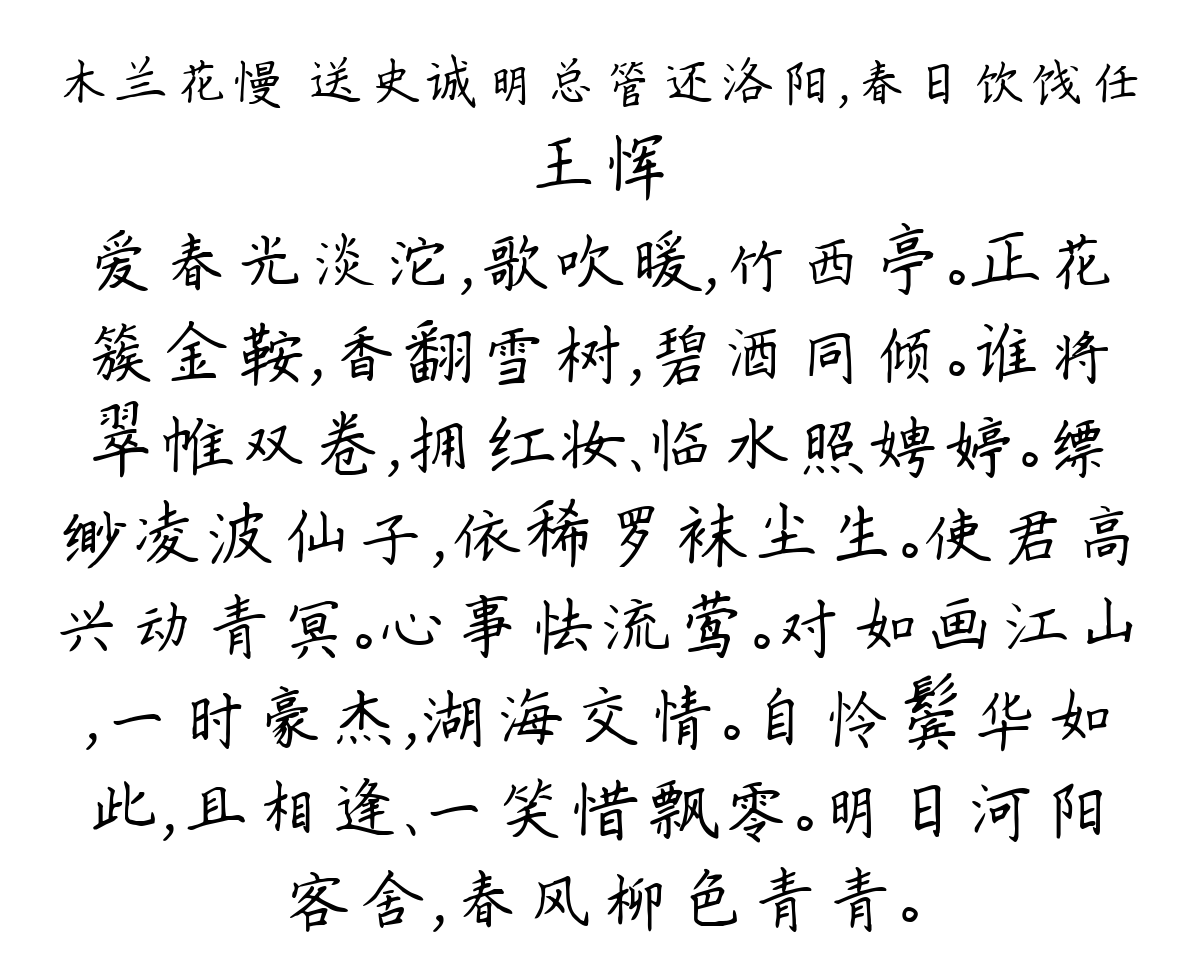 木兰花慢 送史诚明总管还洛阳,春日饮饯任
王恽
爱春光淡沱,歌吹暖,竹西亭。正花
簇金鞍,香翻雪树,碧酒同倾。谁将
翠帷双卷,拥红妆、临水照娉婷。缥
缈凌波仙子,依稀罗袜尘生。使君高
兴动青冥。心事怯流莺。对如画江山
,一时豪杰,湖海交情。自怜鬓华如
此,且相逢、一笑惜飘零。明日河阳
客舍,春风柳色青青。